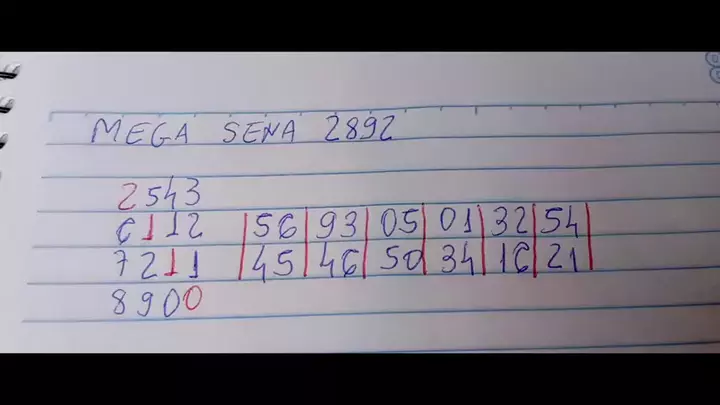 MEGA SENA 2892
2543
6112 | 56 | 93 | 05 | 01 | 32 | 54 |
7211 | 45 | 46 | 50 | 34 | 16 | 21 |
8900